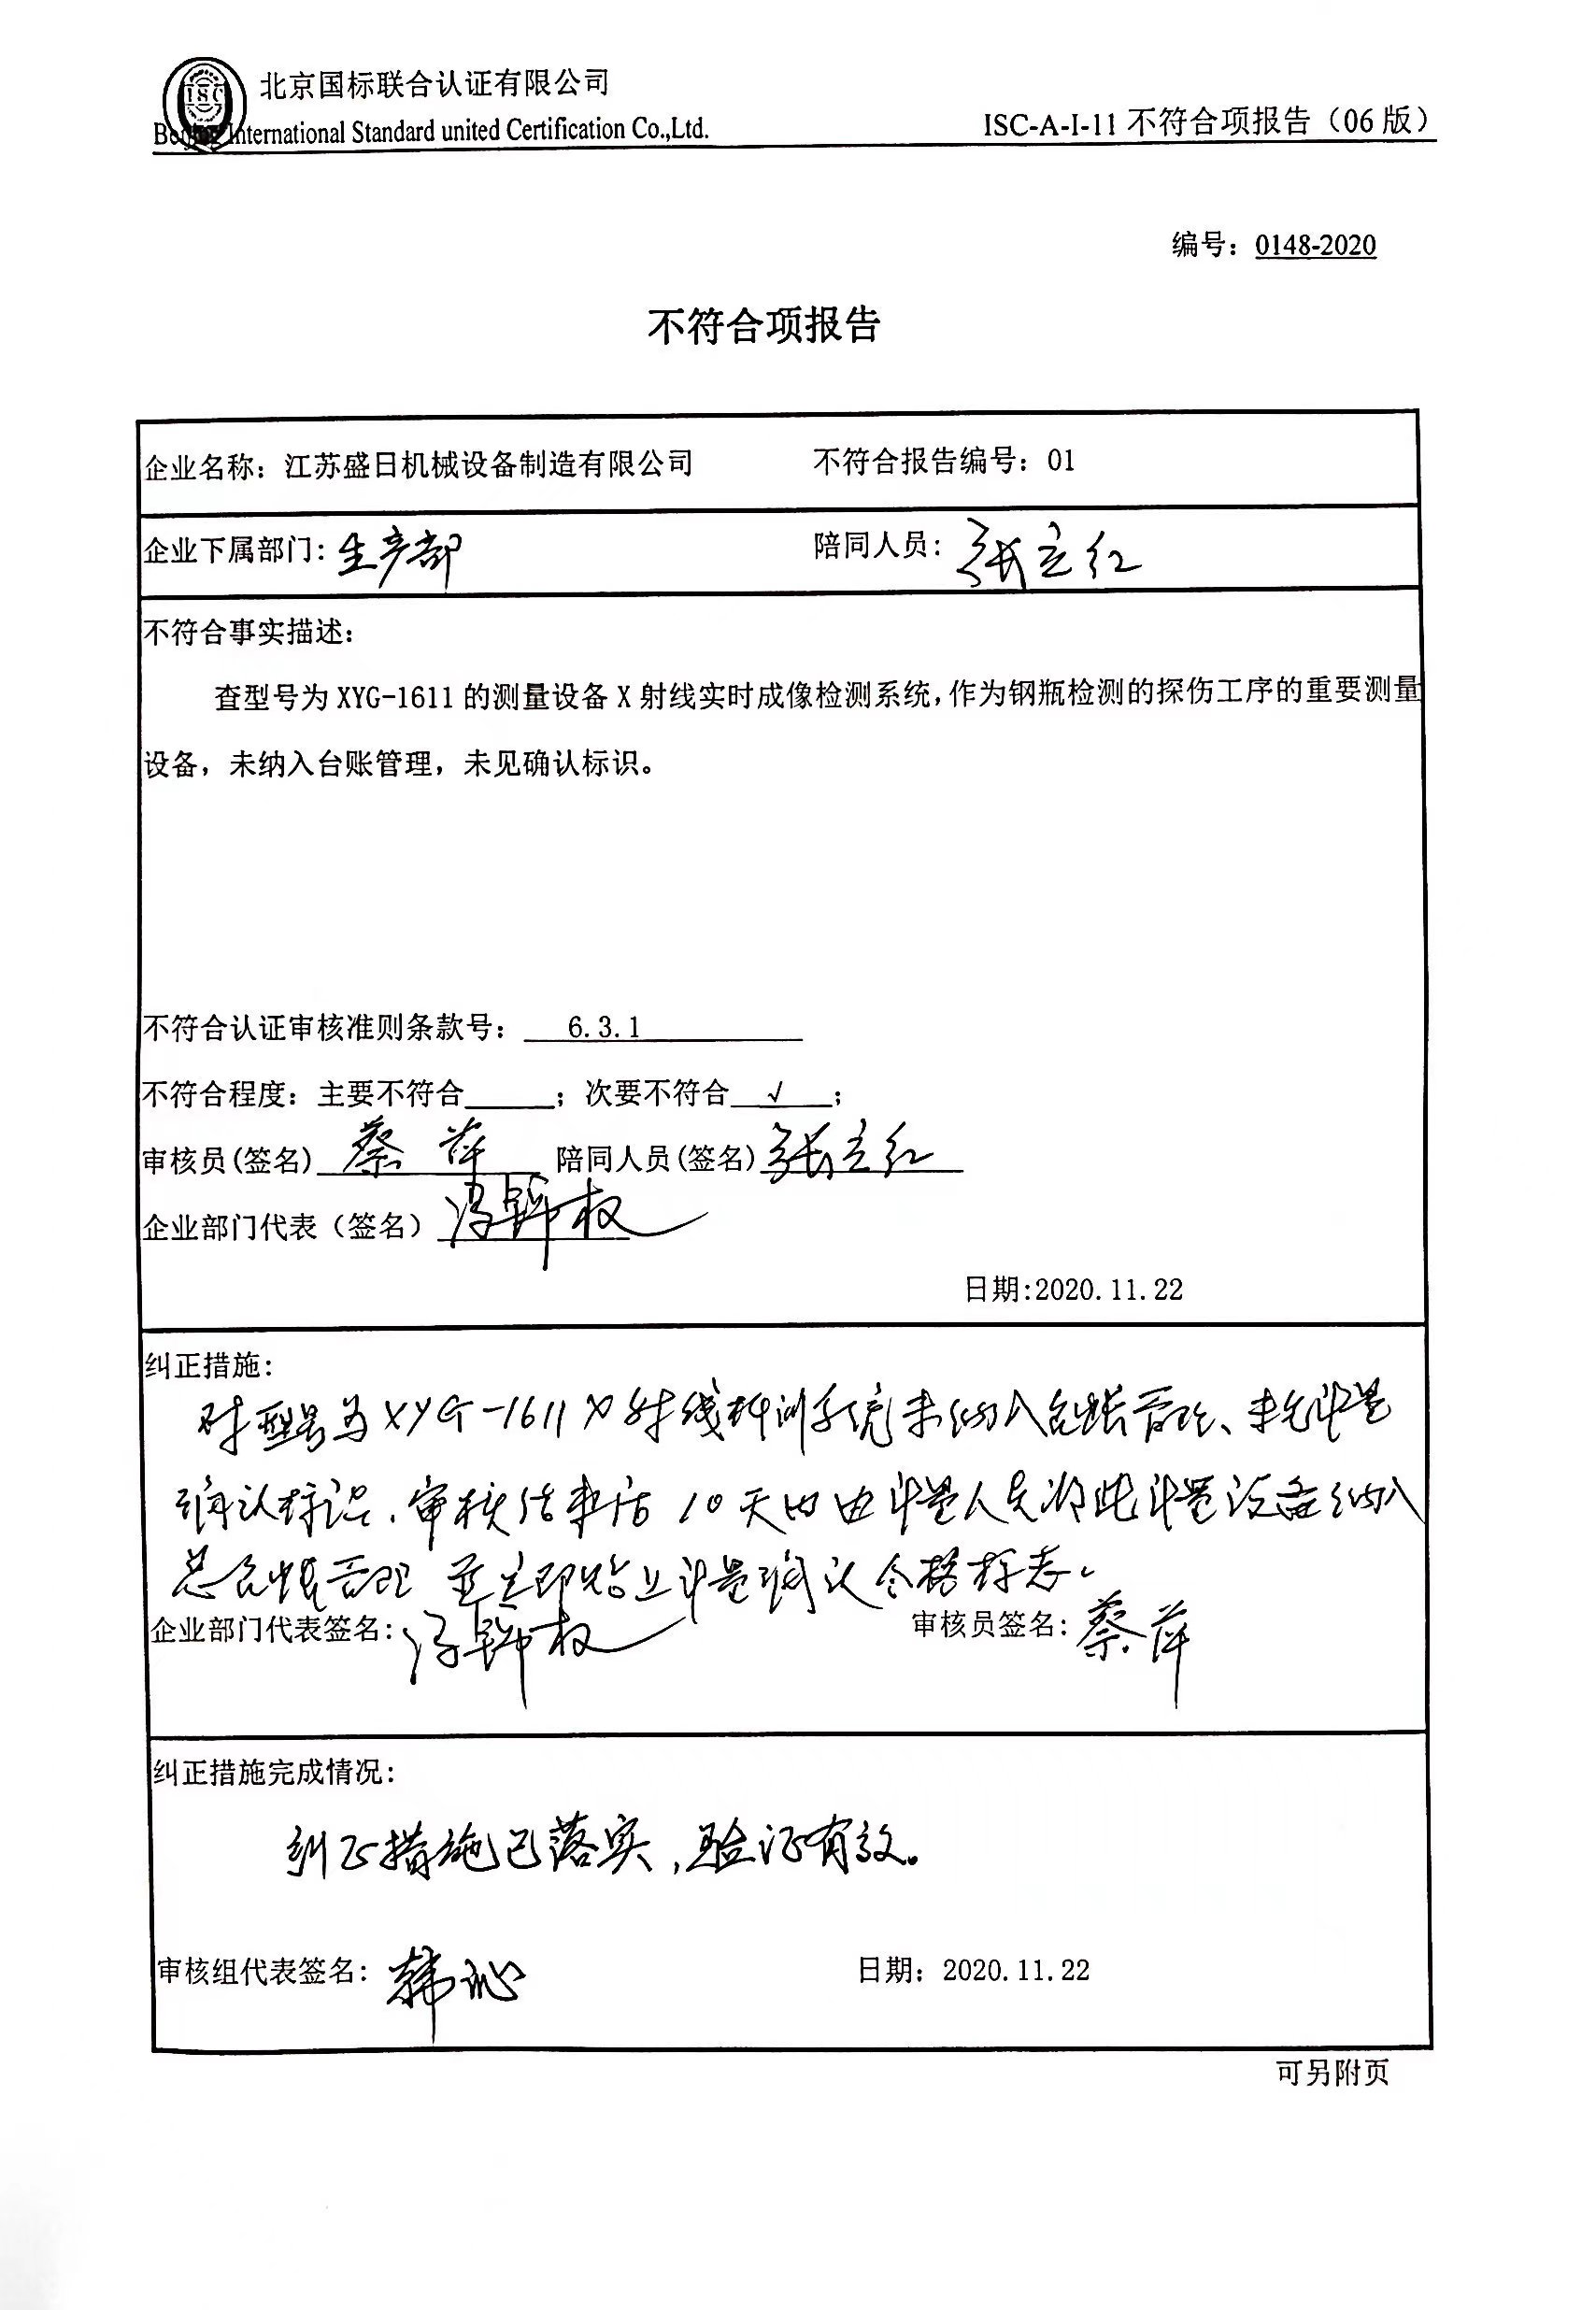 北京国标联合认证有限公司
Beijing International Standard united Certification Co.,Ltd.
ISC-A-I-11 不符合项报告（06 版）
编号：0148-2020
不符合项报告
企业名称：江苏盛日机械设备制造有限公司 不符合报告编号：01
企业下属部门：生产部 陪同人员：张立红
不符合事实描述：
查型号为 XYG-1611 的测量设备 X 射线实时成像检测系统，作为钢瓶检测的探伤工序的重要测量
设备，未纳入台账管理，未见确认标识。
不符合认证审核准则条款号：6.3.1
不符合程度：主要不符合；次要不符合 √；
审核员(签名) 蔡萍 陪同人员(签名) 张立红
企业部门代表（签名）
日期:2020.11.22
纠正措施：
对型号为XYG-1611 X射线检测系统未纳入台账管理、未见计量
确认标识，审核结束后10天内由计量人员将此计量设备纳入
总台账管理 并立即贴上计量确认合格标志。
企业部门代表签名： 审核员签名：蔡萍
纠正措施完成情况：
纠正措施已落实，验证有效。
审核组代表签名：韩沁 日期：2020.11.22
可另附页